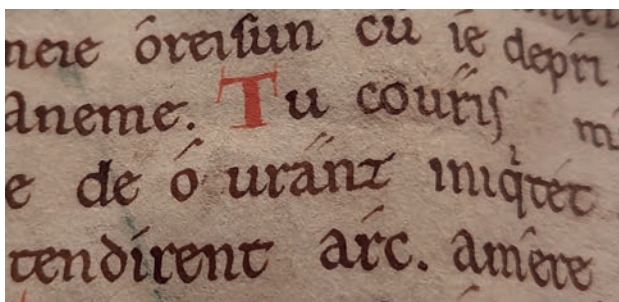 meie óreisun cū ie depri
aneme. Tu couris
e de ó uránt iniq̉tét
tendírent árc. amére